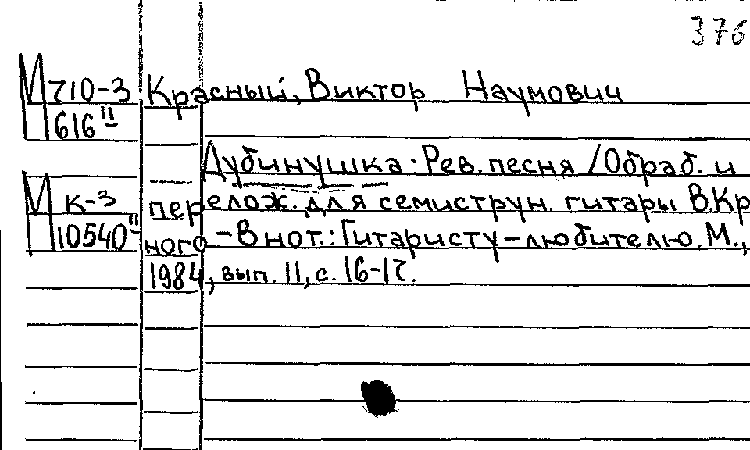 376
М 710-3 Красный, Виктор Наумович
616 II
Дубинушка. Рев. песня / Обраб. и
М к-3 перелож. для семиструн. гитары В.Кр
10540 II ного - В нот.: Гитаристу-любителю. М.,
1984, вып. 11, с. 16-17.